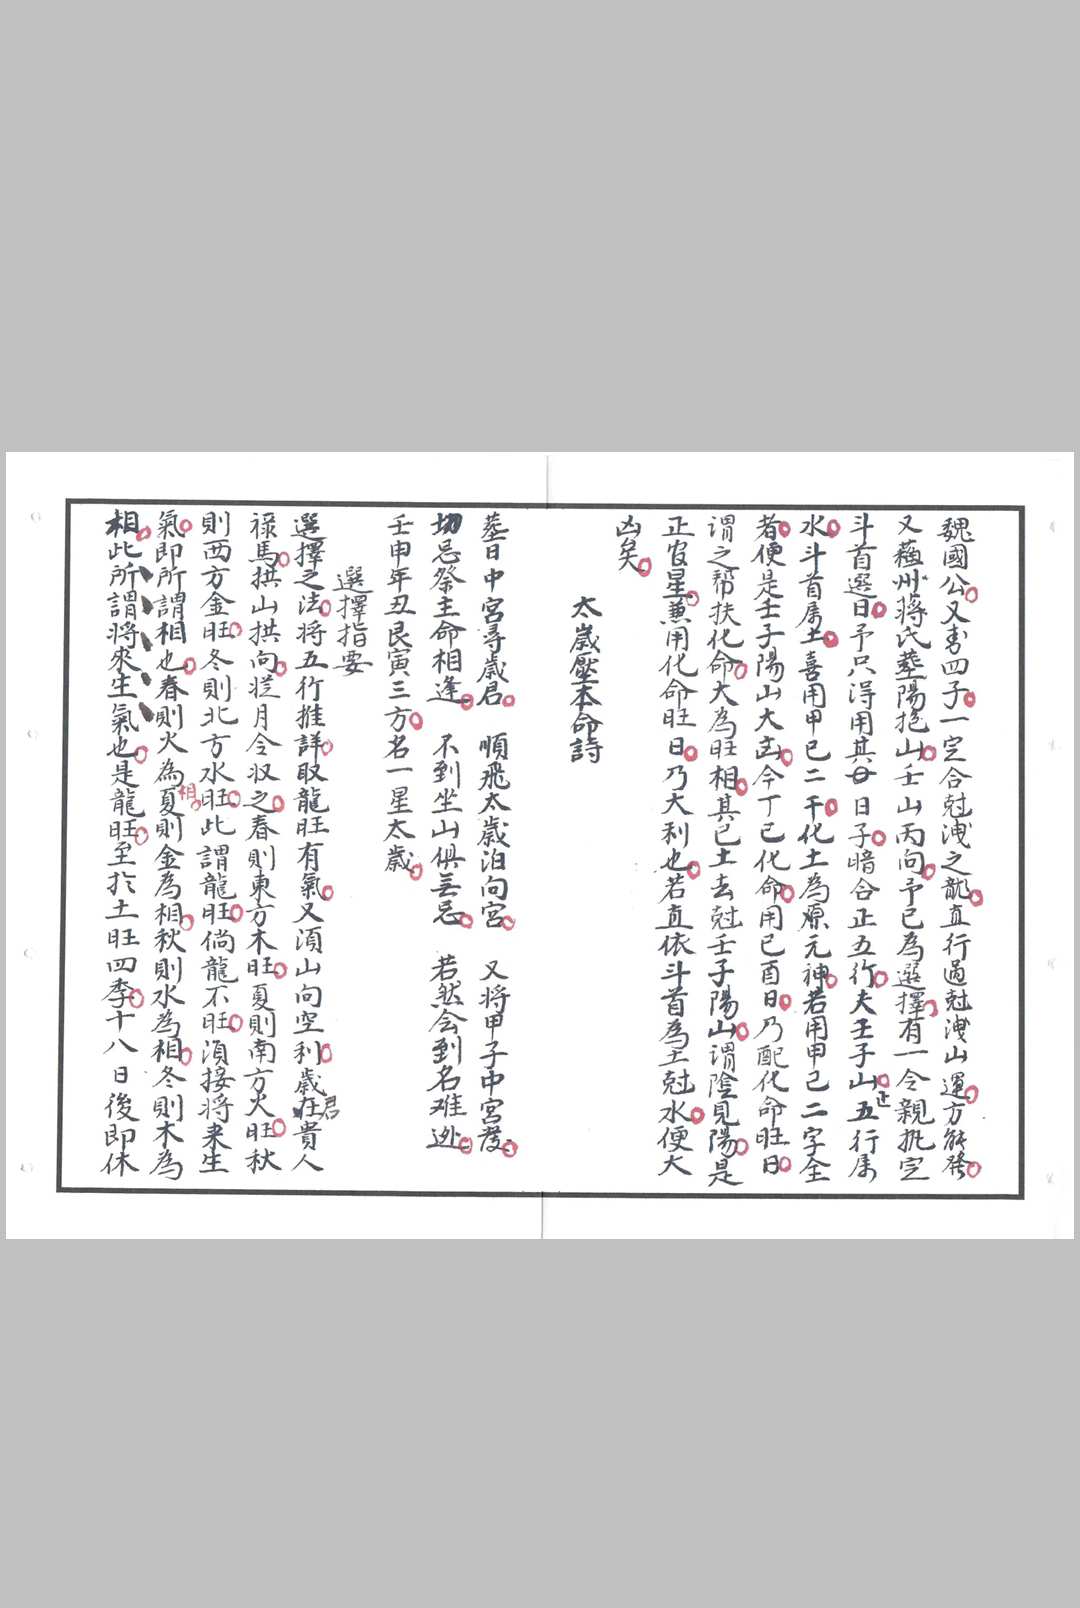 魏國公又書四子一定合尅洩之龍直行過尅洩山運方能發
又蘓州蔣氏塟陽抱山壬山丙向予已為選擇有一令親批定
斗首選日予只淂用其日子暗合正五行夫壬子山正五行属
水斗首属土喜用甲己二干化土為原元神若用甲己二字全
者便是壬子陽山大凶今丁巳化命用己酉日乃配化命旺日
謂之帮扶化命大為旺相其己土去尅壬子陽山謂陰見陽是
正官星兼用化命旺日乃大利也若直依斗首為土尅水便大
凶矣
太歲壓本命詩
塟日中宮尋歲君 順飛太歲泊向宮 又将甲子中宮發
切忌祭主命相逢 不到坐山俱無忌 若然会到名难迯
壬申年丑艮寅三方名一星太歲
選擇指要
選擇之法将五行推詳取龍旺有氣又湏山向空利歲君在貴人
禄馬拱山拱向從月令収之春則東方木旺夏則南方火旺秋
則西方金旺冬則北方水旺此謂龍旺倘龍不旺湏接将来生
氣即所謂相也春則火為相夏則金為相秋則水為相冬則木為
相此所謂将來生氣也是龍旺至扵土旺四季十八日後即休